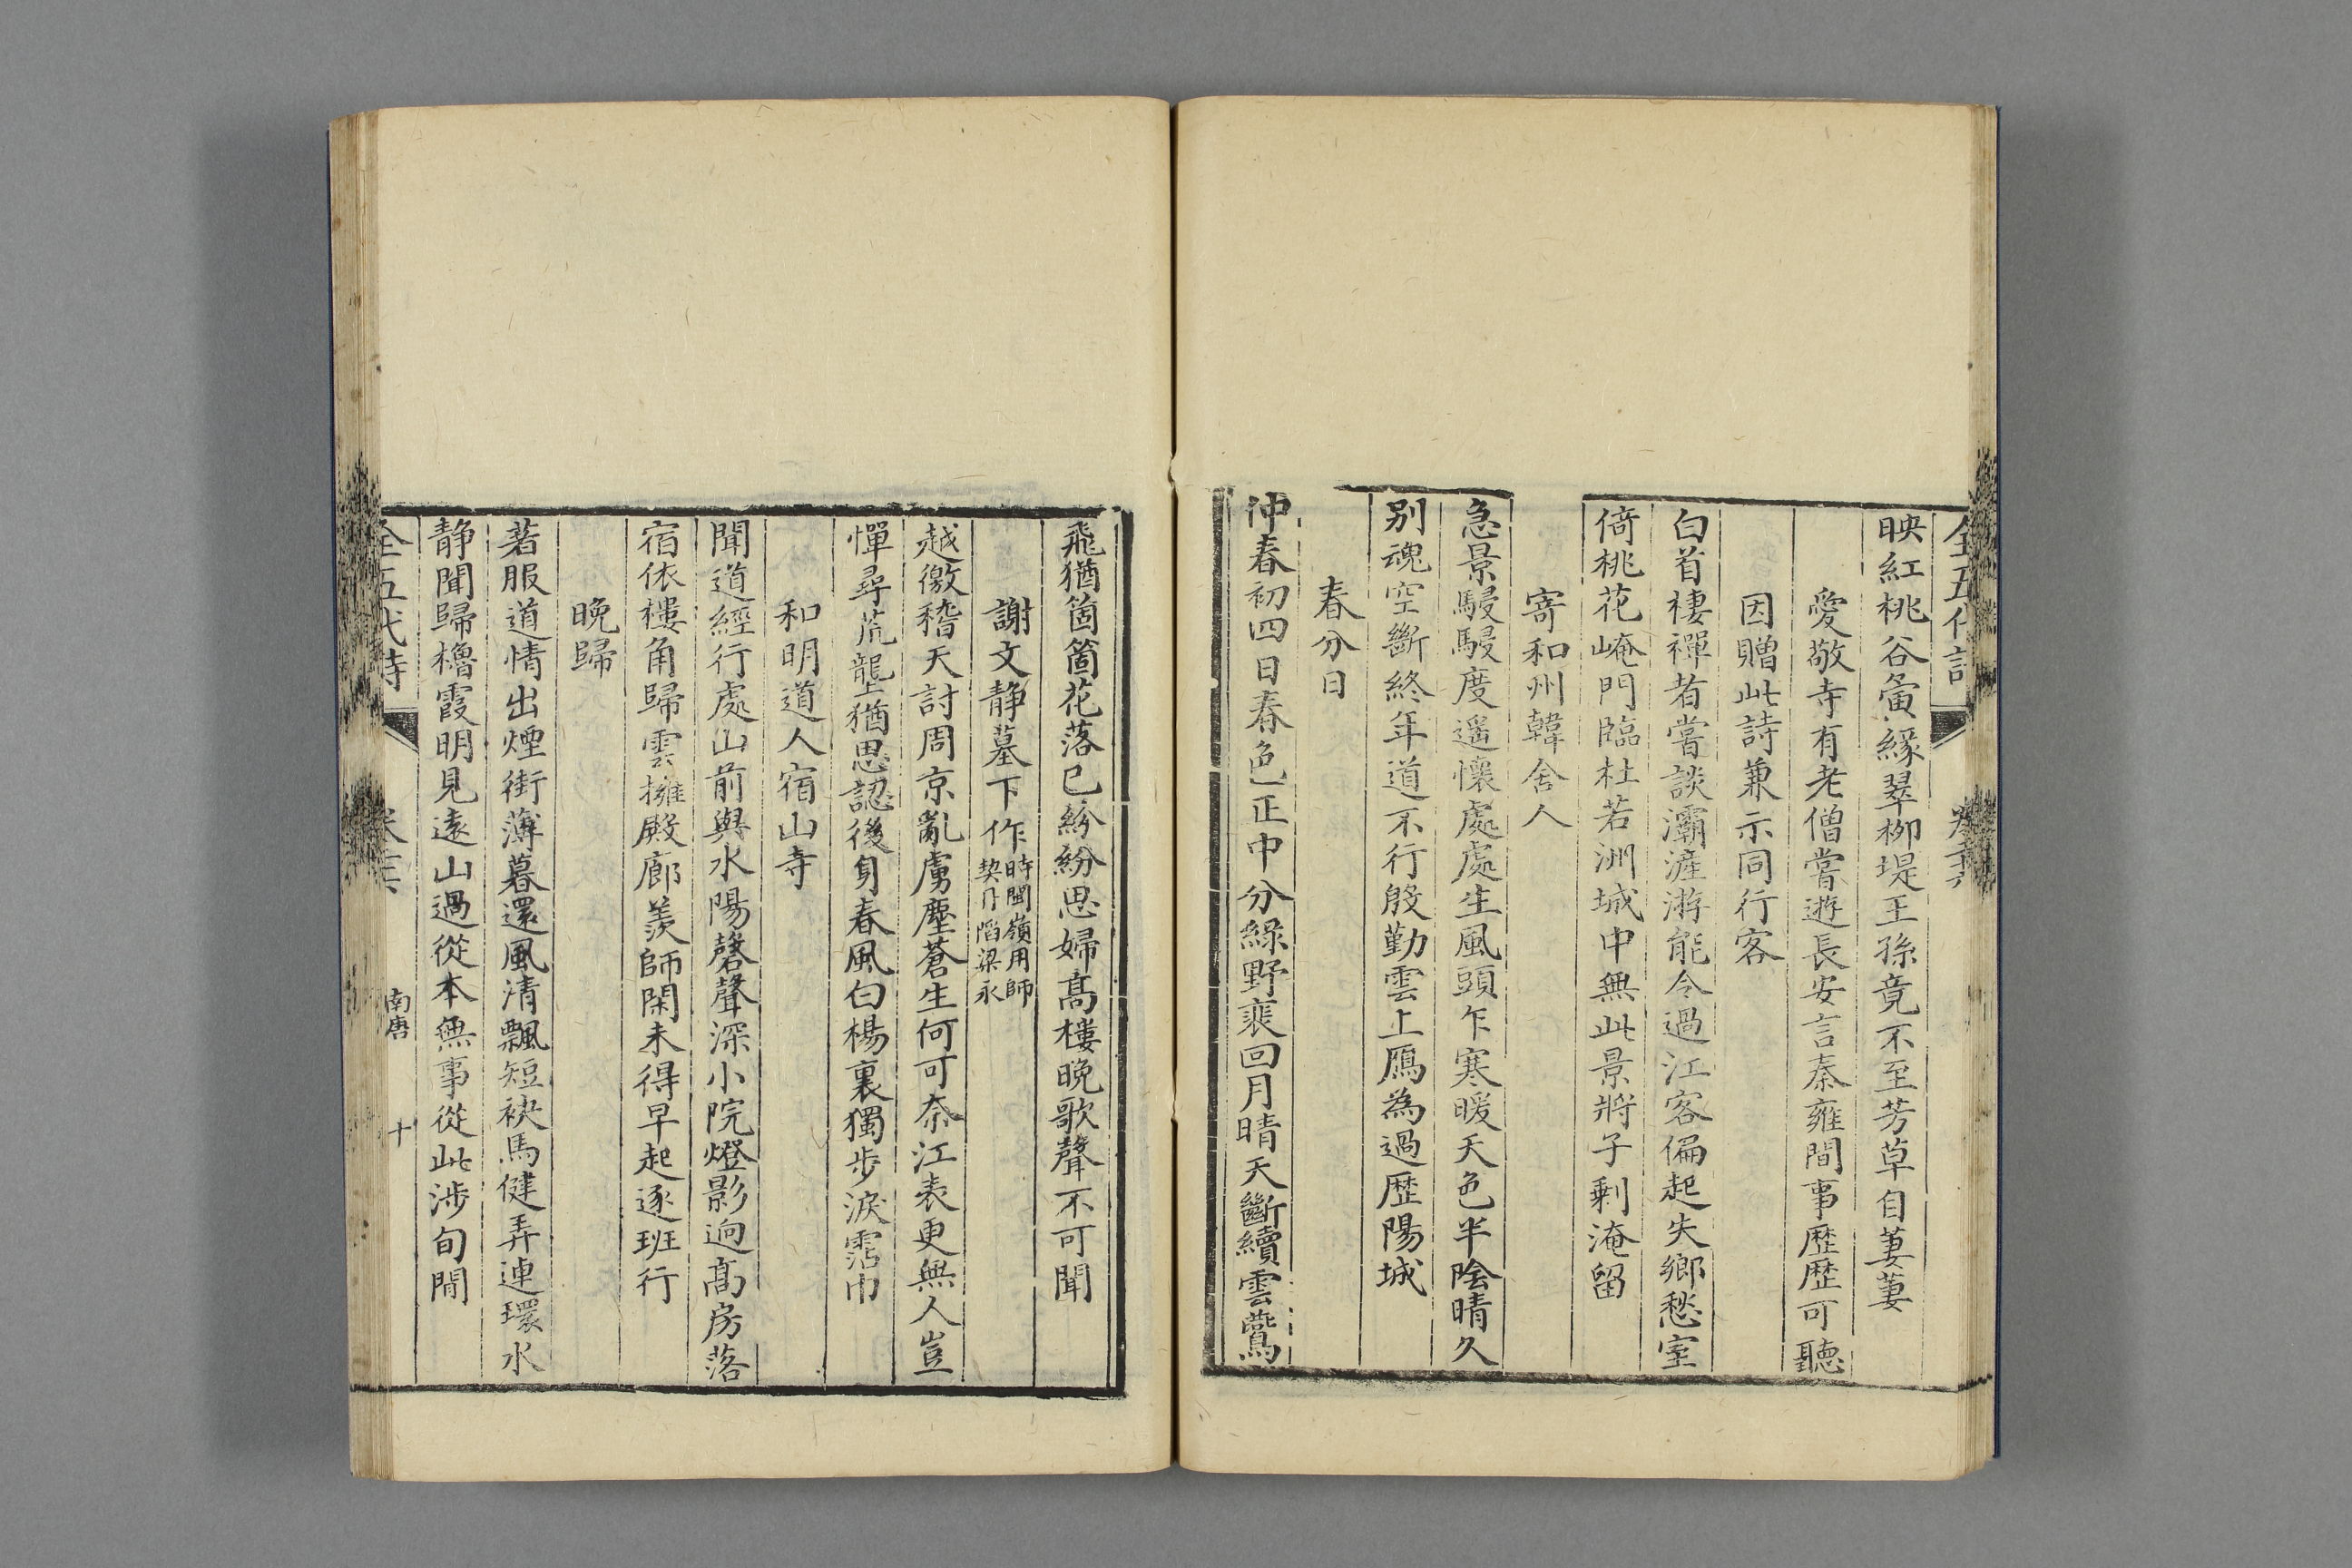 全五代詩
映紅桃谷夤緣翠柳堤王孫竟不至芳草自萋萋
愛敬寺有老僧嘗遊長安言秦雍間事歷歷可聽
因贈此詩兼示同行客
白首棲禪者嘗談灞滻游能令過江客偏起失鄉愁室
倚桃花崦門臨杜若洲城中無此景將子剩淹留
寄和州韓舍人
急景駸駸度遥懷處處生風頭乍寒暖天色半陰晴久
别魂空斷終年道不行殷勤雲上鴈為過歷陽城
春分日
仲春初四日春色正中分綠野裴回月晴天斷續雲鷰
飛猶箇箇花落已紛紛思婦高樓晚歌聲不可聞
謝文靜墓下作時閩嶺用師
契丹陷梁永
越徼稽天討周京亂虜塵蒼生何可奈江表更無人豈
憚尋荒壟猶思認後身春風白楊裏獨步淚霑巾
和明道人宿山寺
聞道經行處山前與水陽磬聲深小院燈影迥高房落
宿依樓角歸雲擁殿廊羨師閑未得早起逐班行
晚歸
若服道情出煙街薄暮還風清飄短袂馬健弄連環水
静聞歸櫓霞明見遠山過從本無事從此涉旬間
全五代詩
南唐
十